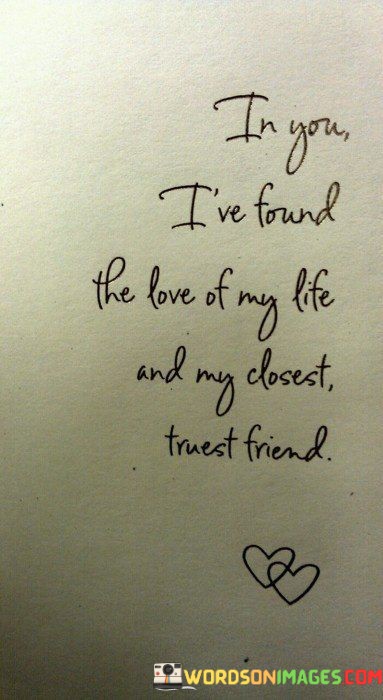 In you,
I've found
the love of my life
and my closest,
truest friend.
WORDSONIMAGES.COM